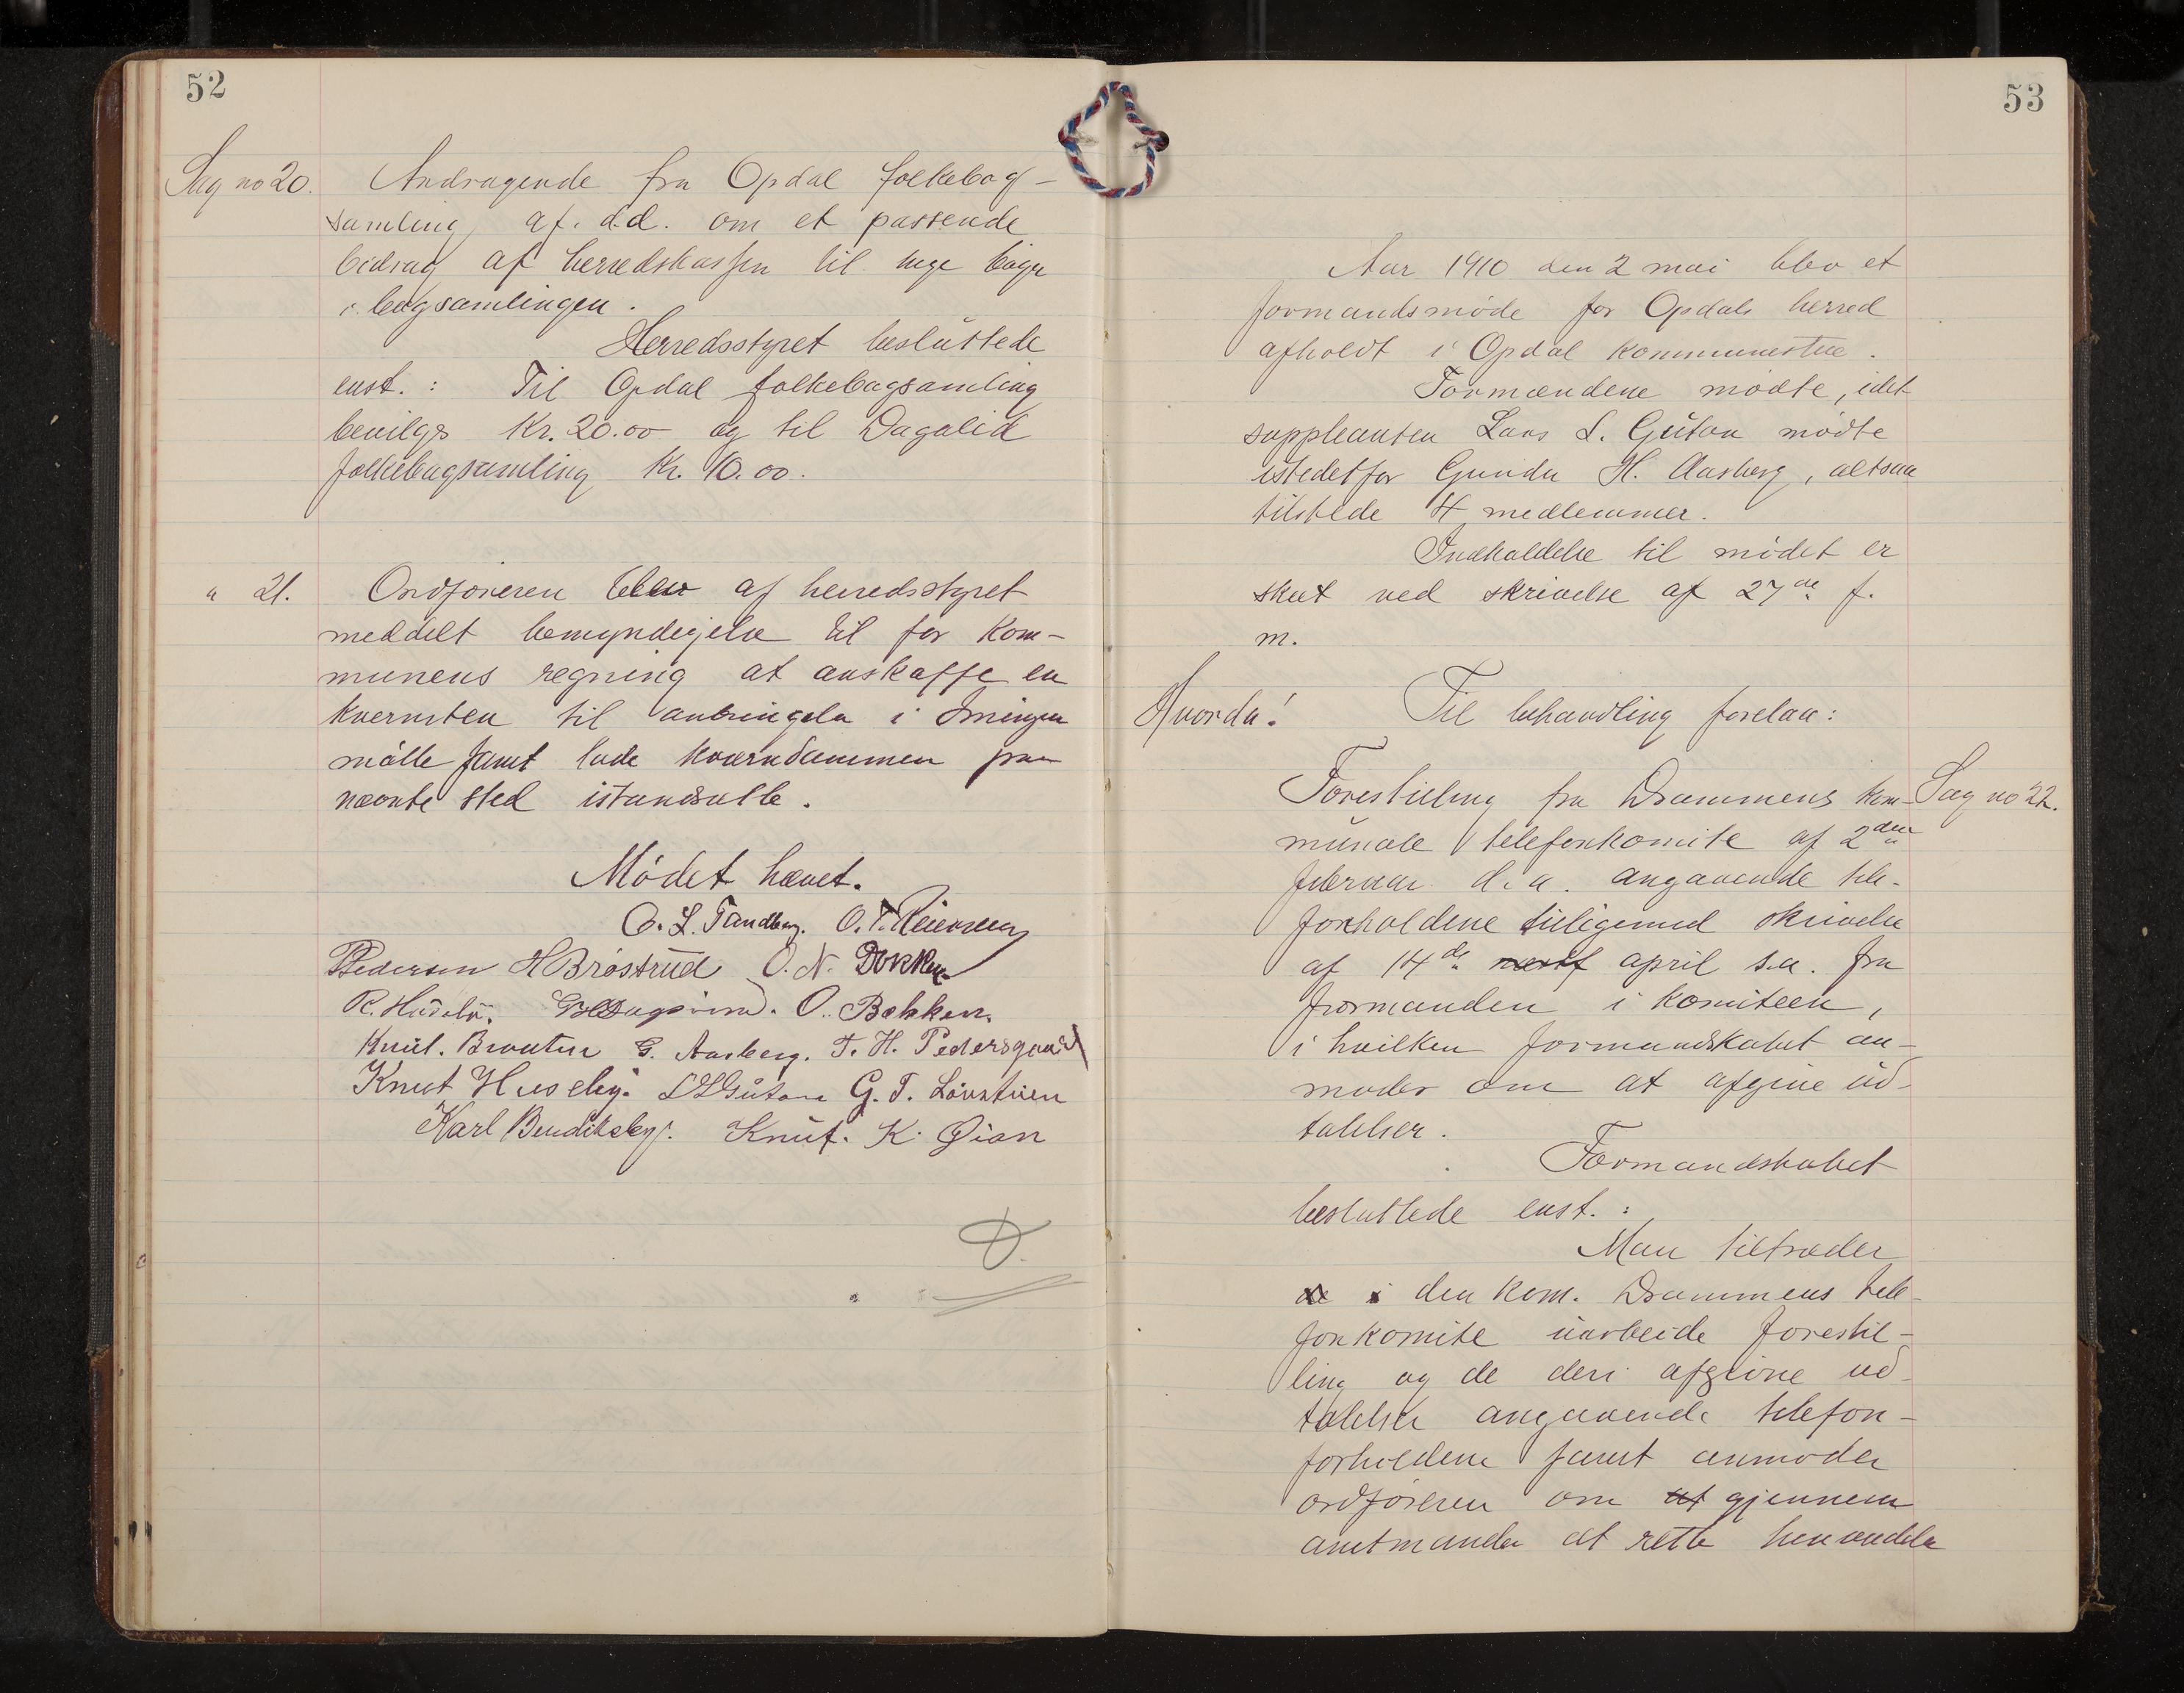 52
Sag no 20. Andragende fra Opdal folkebog-
samling af d.d. om et passende
bidrag af herredskassen til nye bøger
i bogsamlingen.
Herredsstyret besluttede
enst.: Til Opdal folkebogsamling
bevilges Kr. 20.00 og til Dagalid
folkebogsamling Kr. 10.00.
" 21. Ordføreren blev af herredsstyret
meddelt bemyndigelse til for kom-
munens regning at anskaffe en
kvernsten til anbringelse i
mølle samt lade kverndammen paa
nævnte sted istandsætte.
Mødet hævet.
O. L. Tandberg. O. T.
Pedersen H Brøstrud O. N. Dokken
O. Bakken.
Knut. Braaten G. Aasberg. T. H. Pedersgaard
Knut Huseby. G. T. Løvstuen
Karl Bendiksby. Knut. K. Øian
D.
53
Aar 1910 den 2 mai blev et
formandsmøde for Opdals herred
afholdt i Opdal kommunestue.
Formændene mødte, idet
suppleanten Lars L. Guton mødte
istedetfor Gunder H. Aasberg, altsaa
tilstede 4 medlemmer.
Indkaldelse til mødet er
skeet ved skrivelse af 27de f.
m.
Hvorda! Til behandling forelaa:
Forestilling fra Drammens kom- Sag no 22.
munale telefonkomite af 2den
februar d. a. angaaende tele-
fonholdene tilligemed skrivelse
af 14de april s.a. fra
formanden i komiteen,
i hvilken formandskabet an-
modes om at afgive ud-
talelser.
Formandskabet
besluttede enst.:
Man tiltræder
den kom. Drammens tele-
fonkomite uarbeide forestil-
ling og de deri afgivne ud-
talelser angaaende telefon-
forholdene samt anmoder
ordføreren om at gjennem
amtmanden at rette henvendelse